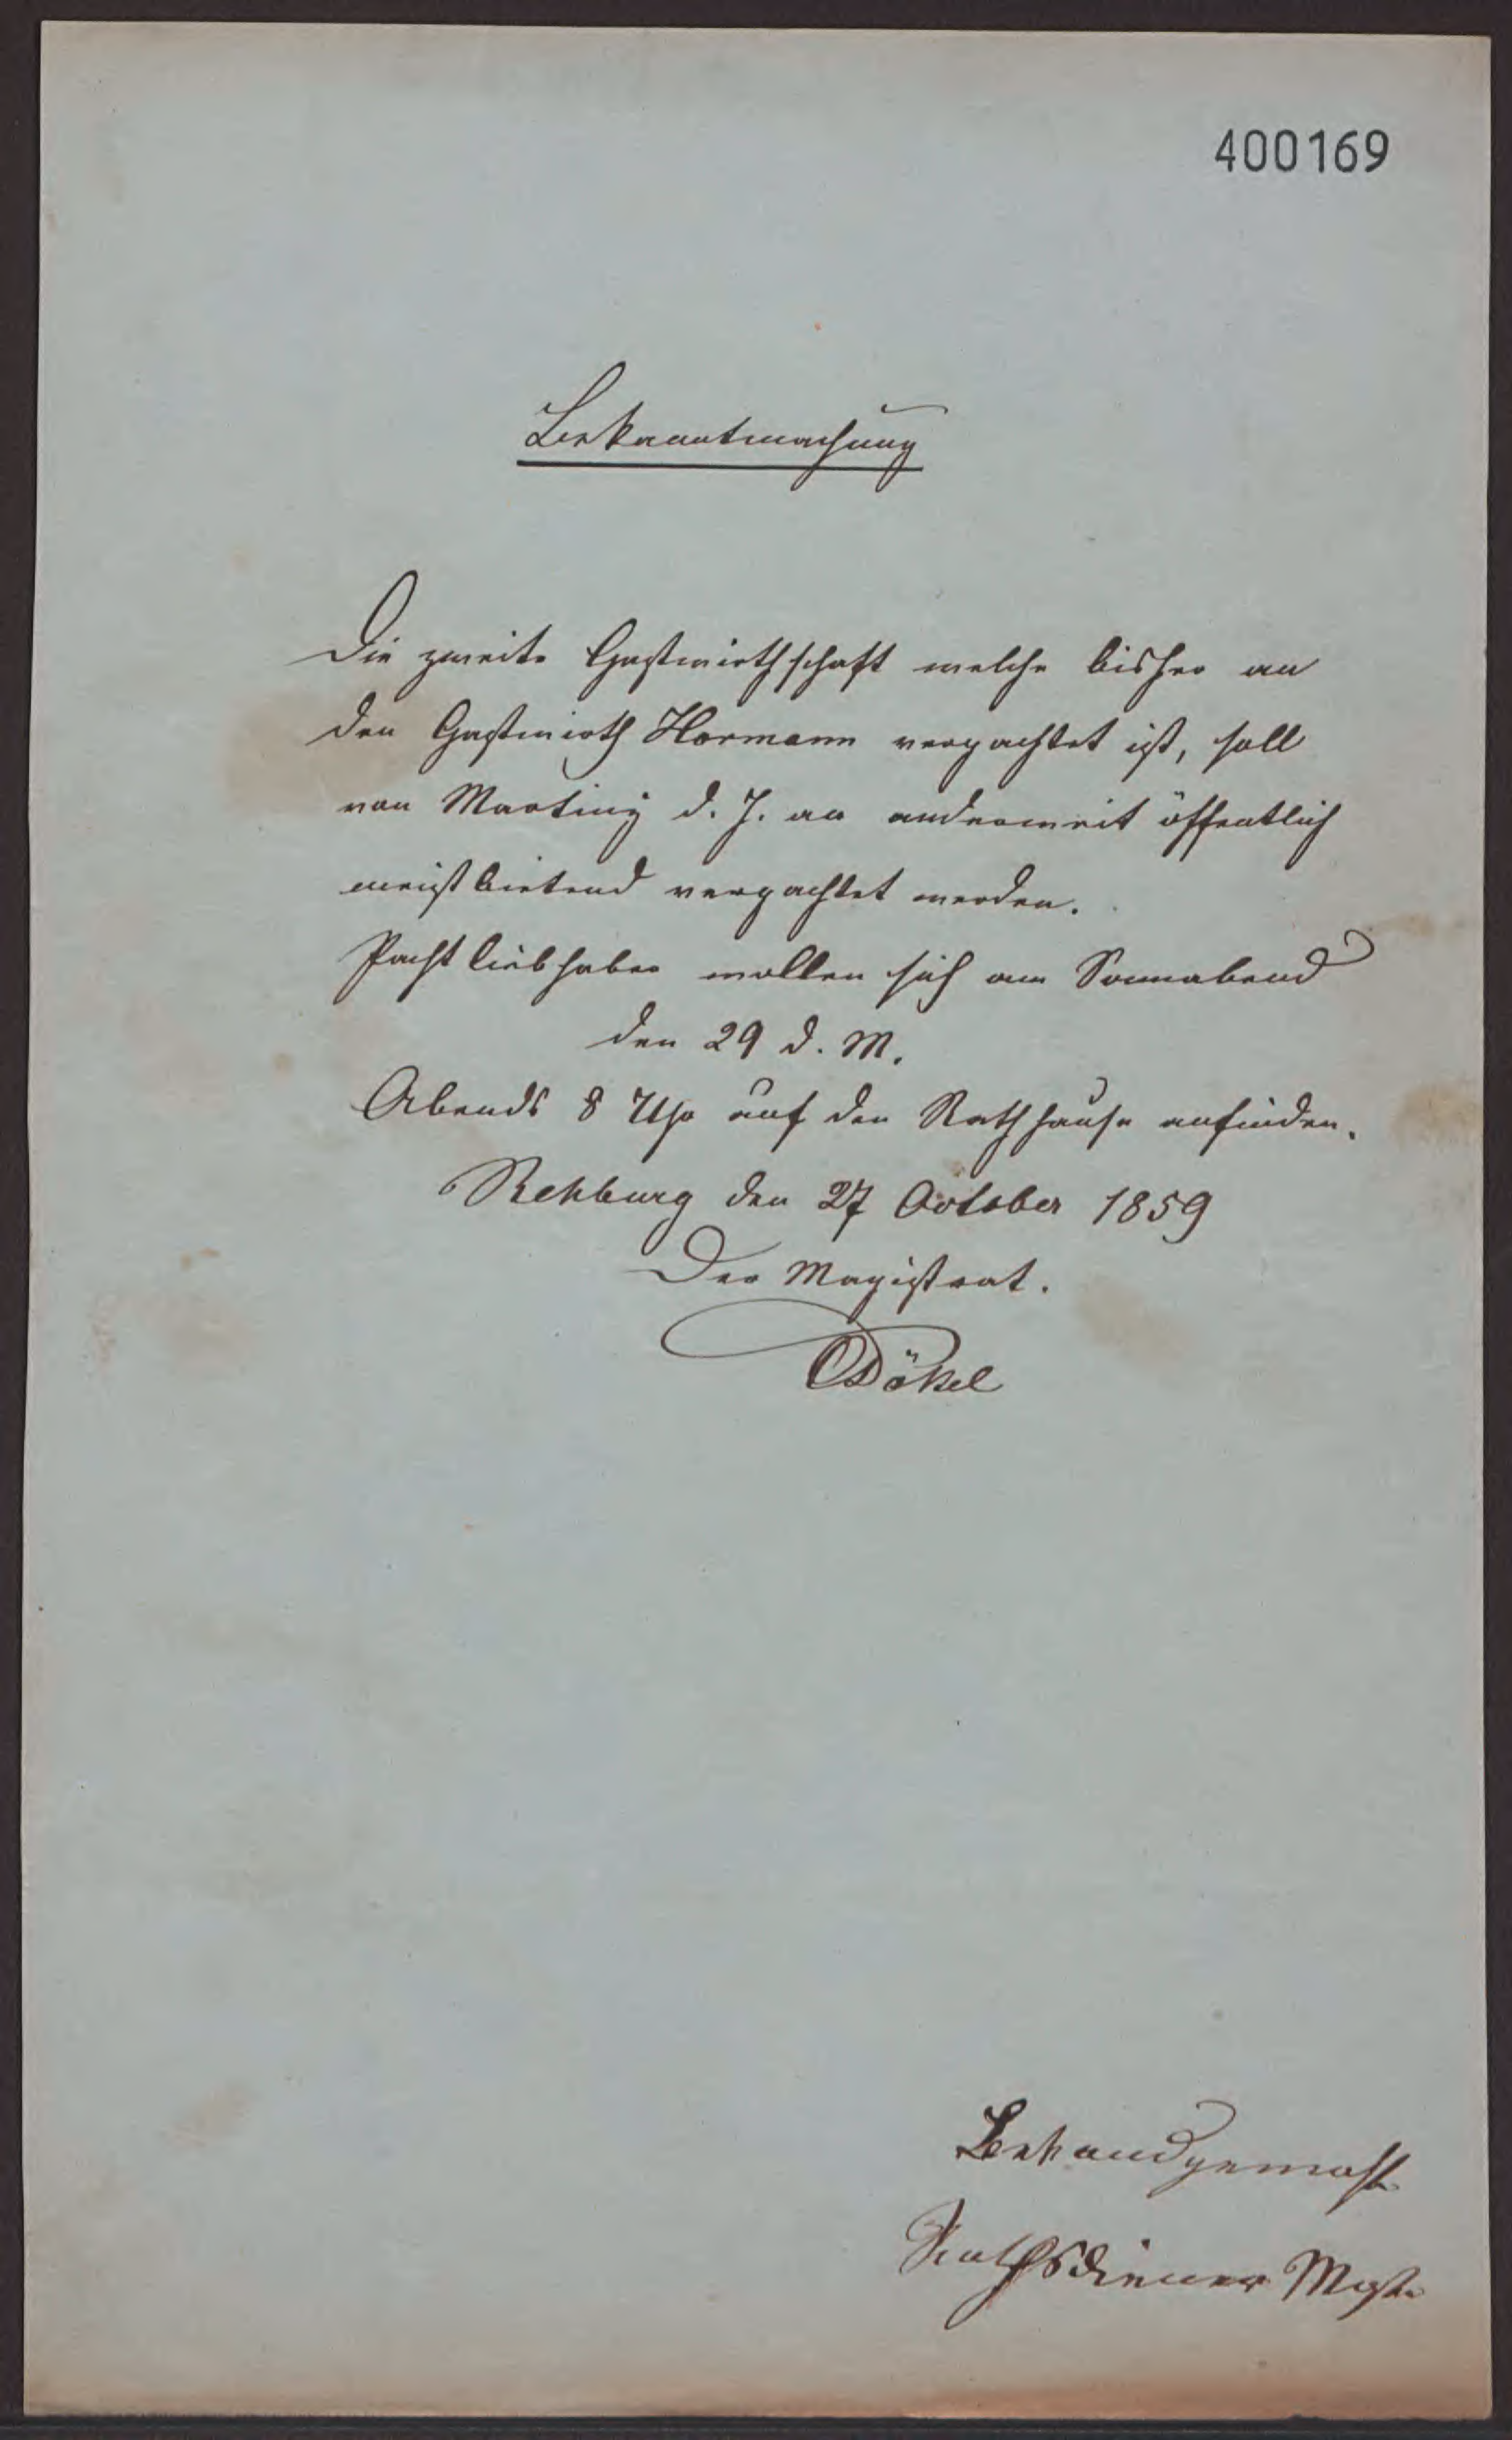 400169
Bekanntmachung
Die zweite Gastwirthschaft welche bisher an
den Gastwirth Hormann verpachtet ist, soll
von Martiny d. J. an anderweit öffentlich
meistbietend verpachtet werden.
Pachtliebhaber wollen sich am Sonnabend
den 29 d. M.
Abends 8 Uhr auf den Rathhause anfinden.
Rehburg den 27 October 1859
Der Magistrat.
Dökel
Bekandgemacht
Rathsdiener